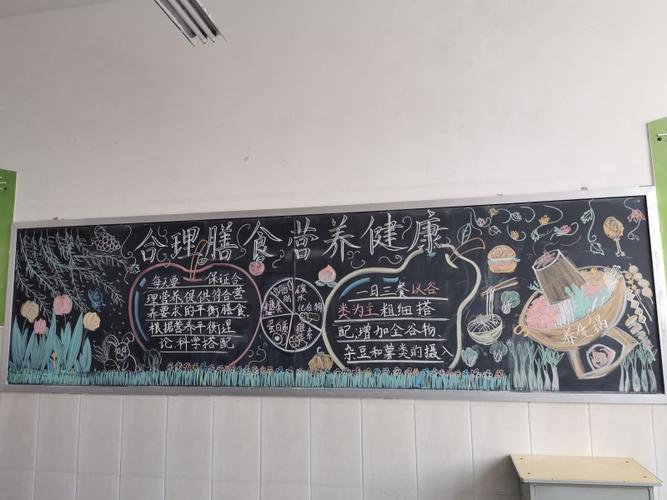 合理膳食营养健康
每天要 保证合
理营养促供符合营
养要求的平衡膳食
根据营养平衡理
论科学搭配
脂肪
碳水化合物
蛋白质
维生素
一日三餐以谷
类为主粗细搭
配,增加全谷物
杂豆和薯类的摄入
养生锅